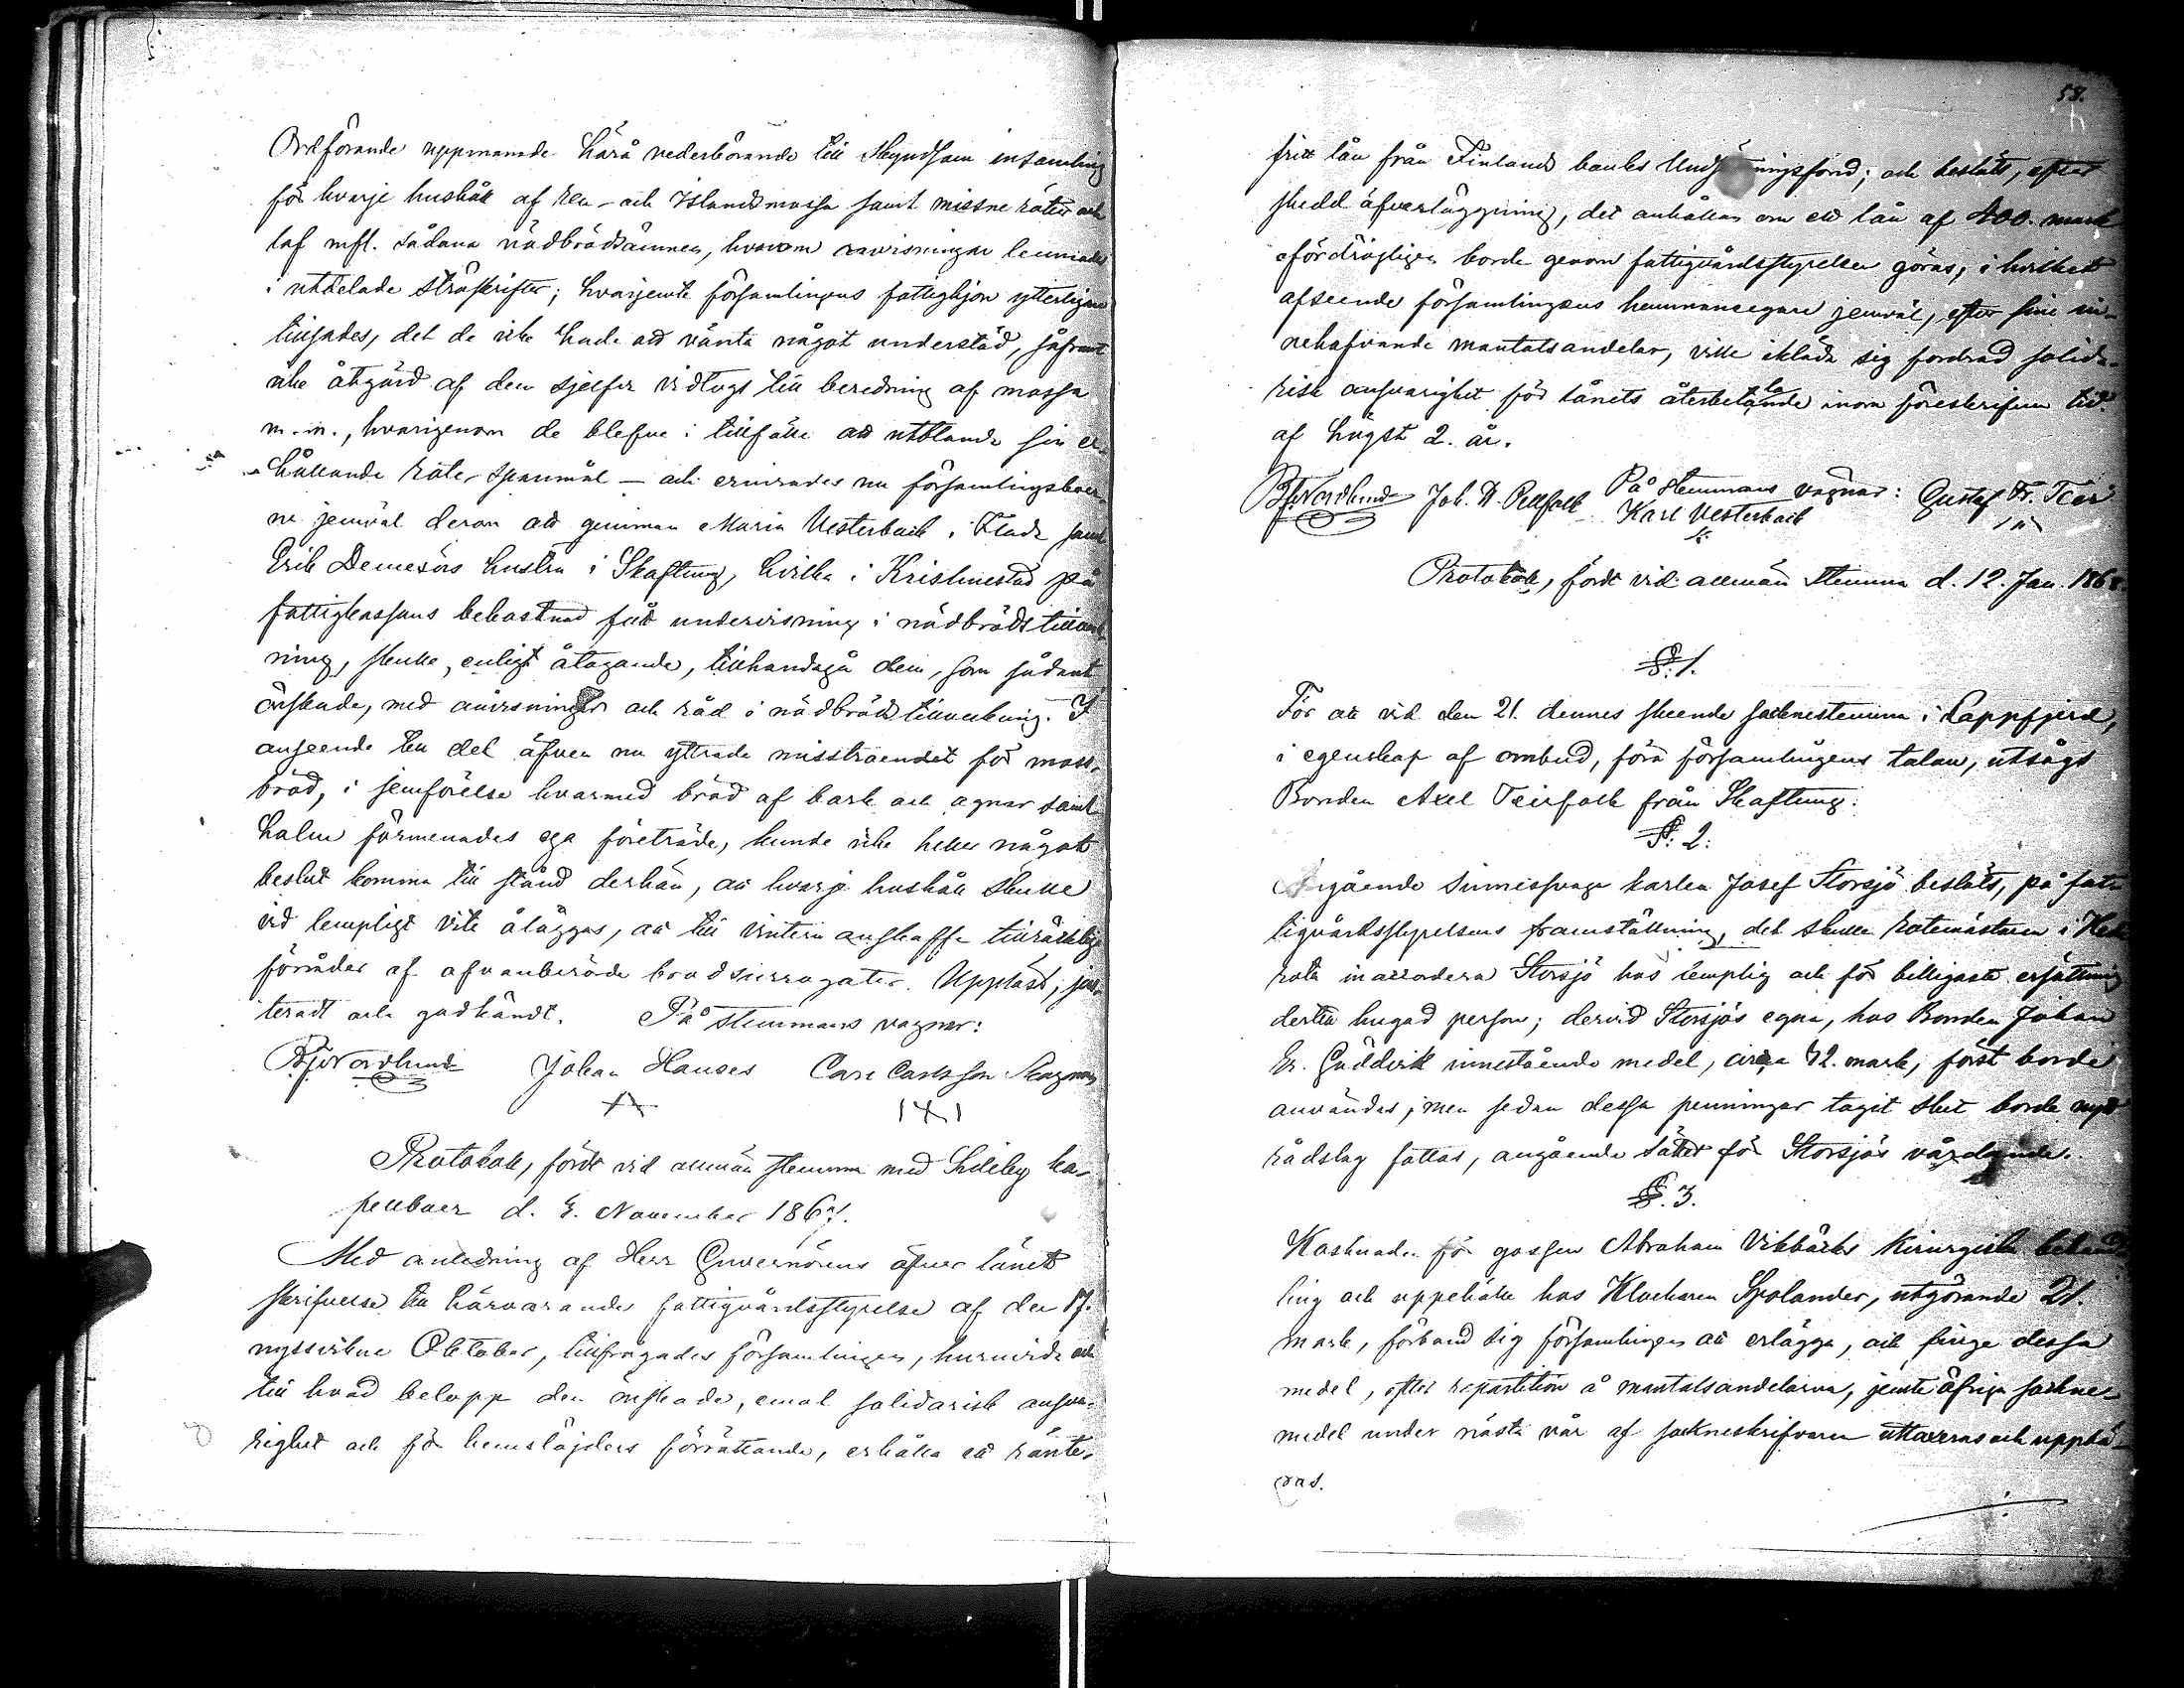 Ordförande uppmanade härå vederbörande till skyndsam insamling
för hvarje hushåll af ren- och Islandsmossa samt missne rötter och
laf mfl. sådana nödbrödsämnen, hvarom anvisningar lemnades
i utdelade ströskrifter; hvarjemte församlingens fattighjon ytterligare
tillsades, det de icke hade att vänta något understöd, såframt
icke åtgärd af dem sjelfva vidtogs till beredning af mossa
m.m., hvarigenom de blefve i tillfälle att utblanda sin er-
hållande rote-spanmål — och erinrades nu församlingsboer-
ne jemväl derom att qvinnan Maria Vesterback i Flada samt
Erik hustru i Skaftung, hvilka i Kristinestad på
fattigkassans bekostnad fått undervisning i nödbröds tillverk-
ning, skulle, enligt åtagande, tillhandagå dem, som sådant
önskade, med anvisningar och råd i nödbröds tillverkning. I
anseende till det äfven nu yttrade misstroendet för moss-
bröd, i jemförelse hvarmed bröd af bark och agnar samt
halm förmenades ega företräde, kunde icke heller något
beslut komma till stånd derhän, att hvarje hushåll skulle
vid lempligt vite åläggas, att till vintern anskaffa tillräcklige
förråder af ofvanberörde brödsurrogater. Uppläst, jus-
teradt och godkändt. På stemmans vägnar:
Bj Nordlund Johan Hanses Carl Carlsson
Protokoll, fördt vid allmän stemma med Sideby ka-
pellboer d. 3. November 1867.
Med anledning af Herr Guvernörens öfver länet
skrifvelse till härvarande fattigvårdsstyrelse af den 17.
nyssvikne Oktober, tillfrågades församlingen, huruvida och
till hvad belopp den önskade, emot solidarisk ansva-
righet och för hemslöjders förrättande, erhålla ett ränte-
58.
fritt lån från Finlands banks Undsättningsfond; och beslöts, efter
skedd öfverläggning, det anhållan om ett lån af 400. mark
ofördröjligen borde genom fattigvårdsstyrelsen göras, i hvilket
afseende församlingens hemmansegare jemväl, efter sine in-
nehafvande mantalsandelar, ville ikläda sig fordrad solida-
risk ansvarighet för lånets återbetalande inom föreskrifven tid
af högst 2. år.
Bj Nordlund Joh. H. Rosfolk På stemmans vägnar: Gustaf Fr. Teir
Karl Vesterback
Protokoll, fördt vid allmän stemma d. 12. Jan. 1868.
§. 1.
För att vid den 21. dennes skeende sockenstemma i Lappfjerd,
i egenskap af ombud, föra församlingens talan, utsågs
Bonden Axel Teirfolk från Skaftung.
§. 2.
Angående sinnessvaga karlen Josef Storsjö beslöts, på fat-
tigvårdsstyrelsens framställning, det skulle rotemästaren i
rota inackordera Storsjö hos lemplig och för billigaste ersättning
dertill hugad person; dervid Storsjös egna, hos Bonden Johan
Er. Gudderik innestående medel, cirka 72. mark, först borde
användas; men sedan dessa penningar tagit slut borde nytt
rådslag fattas, angående sättet för Storsjös vårdande.
§. 3.
Kostnaden för gossen Abraham Vikbäcks kirurgiska behand-
ling och uppehälle hos Klockaren Spolander, utgörande 21.
mark, förband sig församlingen att erlägga, och finge dessa
medel, efter repartition å mantalsandelarna, jemte öfriga sockne-
medel under nästa vår af socknskrifvaren uttaxeras och uppbä-
ras.